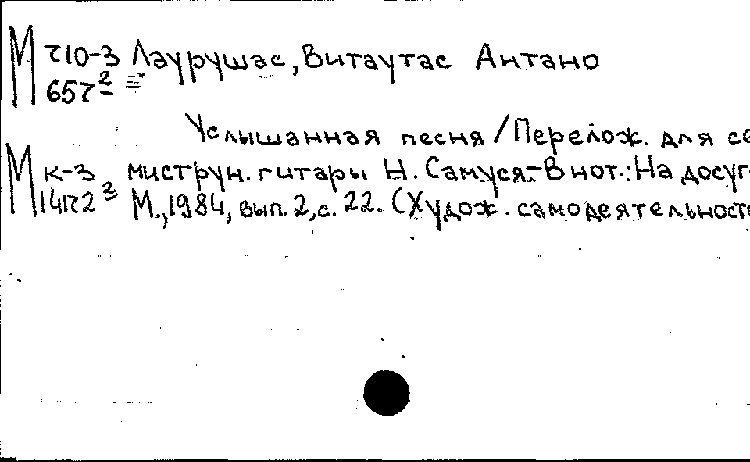 М т10-3 Лаурушас, Витаутас Антано
657²
Услышанная песня / Перелож. для се
М к-3 миструн. гитары Н. Самуся.-В нот.: На досуг
М., 1984, вып. 2, с. 22. (Худож. самодеятельност